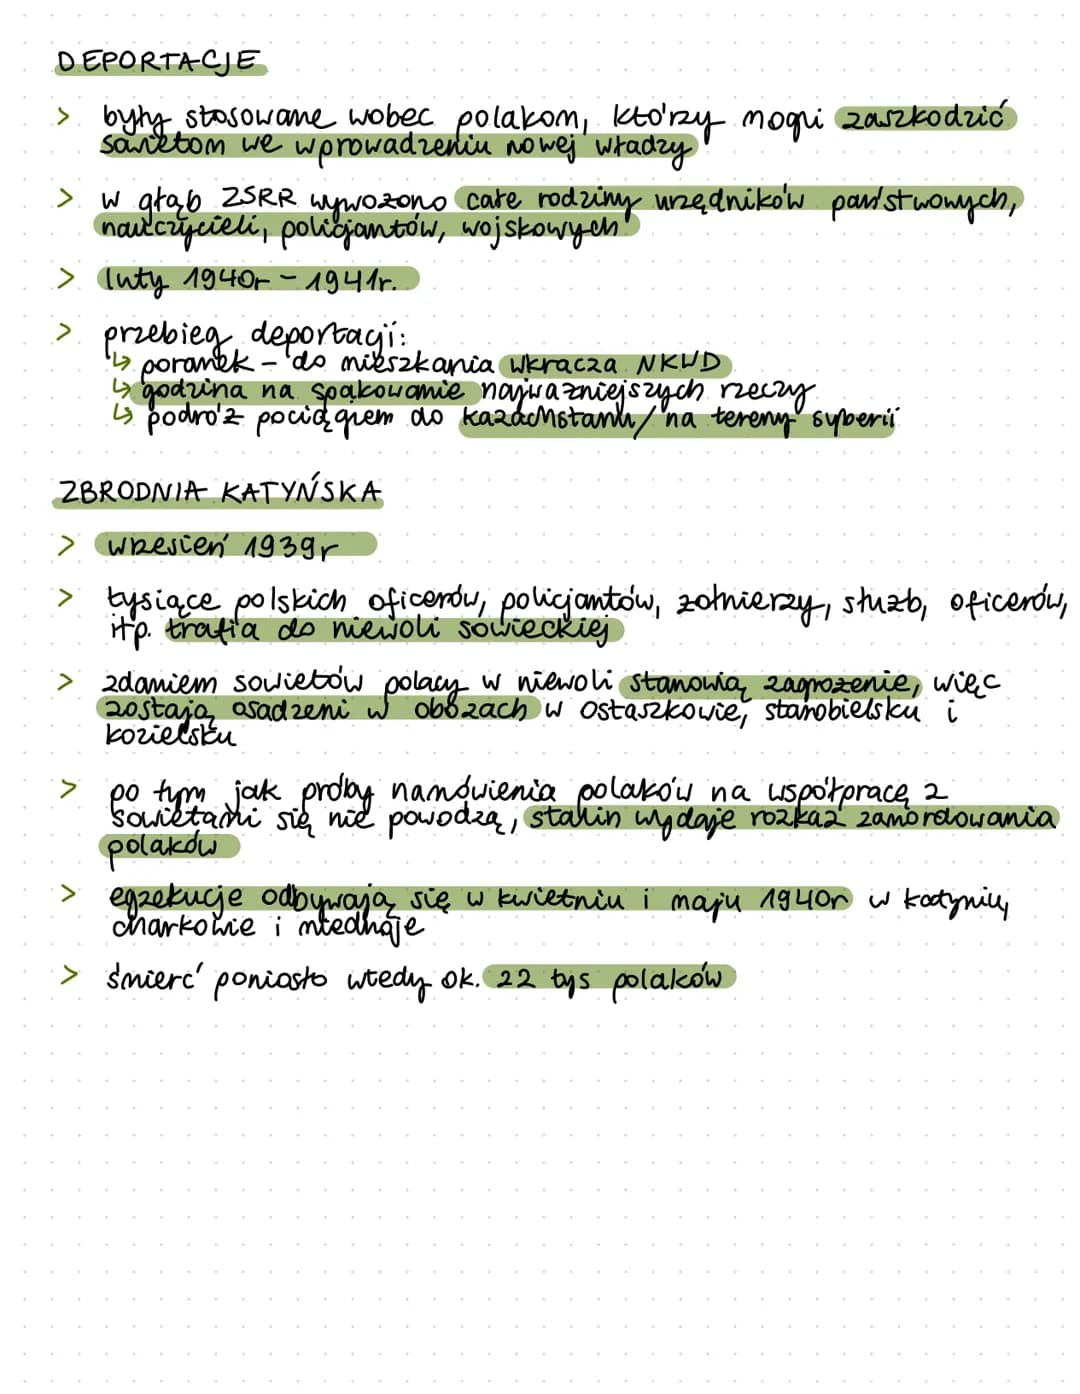 DEPORTACJE
> były stosowane wobec polakom, którzy mogli zaszkodzić
sowietom we wprowadzeniu nowej władzy
> w głąb ZSRR wywożono całe rodziny urzędników państwowych,
nauczycieli, policjantów, wojskowych
> luty 1940r - 1941r.
> przebieg deportacji:
↳ poranek - do mieszkania wkracza NKWD
↳ godzina na spakowanie najważniejszych rzeczy
↳ podróż pociągiem do kazachstanu/na tereny syberii
ZBRODNIA KATYŃSKA
> wrzesień 1939r
> tysiące polskich oficerów, policjantów, żołnierzy, służb, oficerów,
itp. trafia do niewoli sowieckiej
> zdaniem sowietów polacy w niewoli stanowią zagrożenie, więc
zostają osadzeni w obozach w ostaszkowie, starobielsku i
kozielsku
> po tym jak próby namówienia polaków na współpracę z
sowietami się nie powodzą, stalin wydaje rozkaz zamordowania
polaków
> egzekucje odbywają się w kwietniu i maju 1940r w katyniu,
charkowie i miednoje
> śmierć poniosło wtedy ok. 22 tys polaków